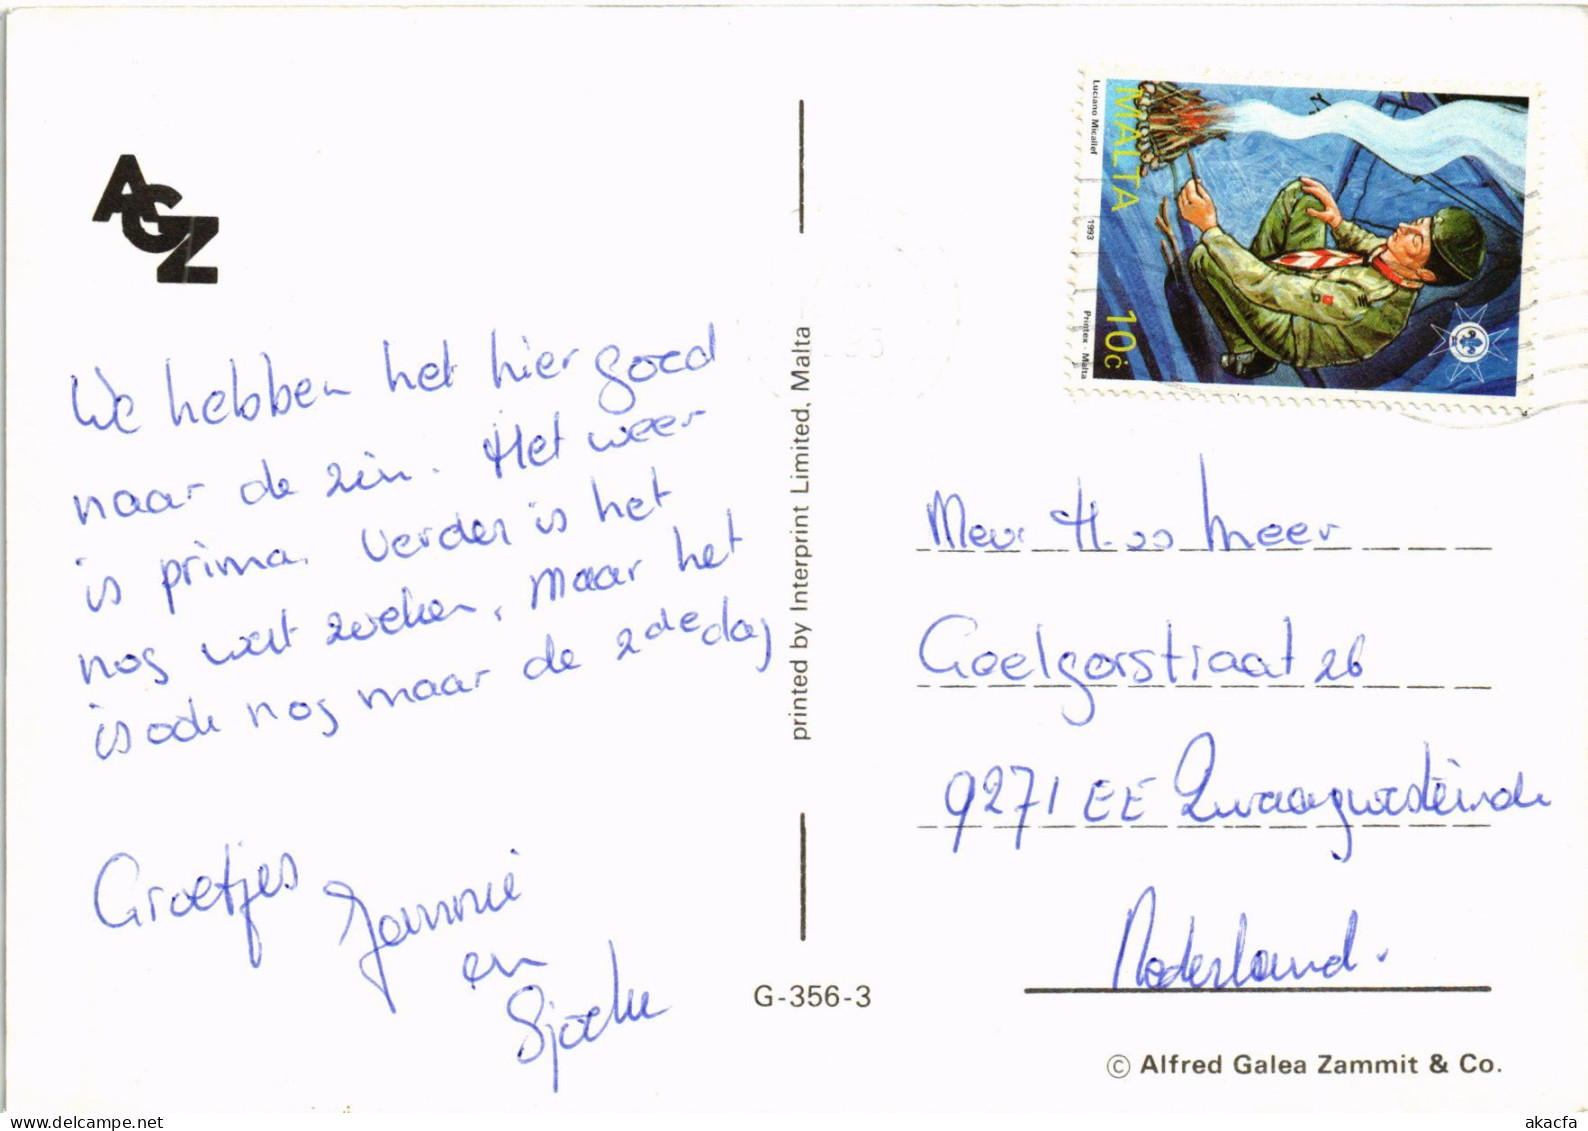 AGZ
We hebben het hier goed
naar de zin. Het weer
is prima. Verder is het
nog wat zoeken, maar het
is ook nog maar de 2de dag
Groetjes
Jannie
en
Sjoeke
printed by Interprint Limited, Malta
G-356-3
MALTA
10c
Luciano Micallef
1993
Printex - Malta
Mevr. H. meer
Goelgorstraat 26
9271 EE Zwaagwesteinde
Nederland.
© Alfred Galea Zammit & Co.
delcampe.net
akacfa